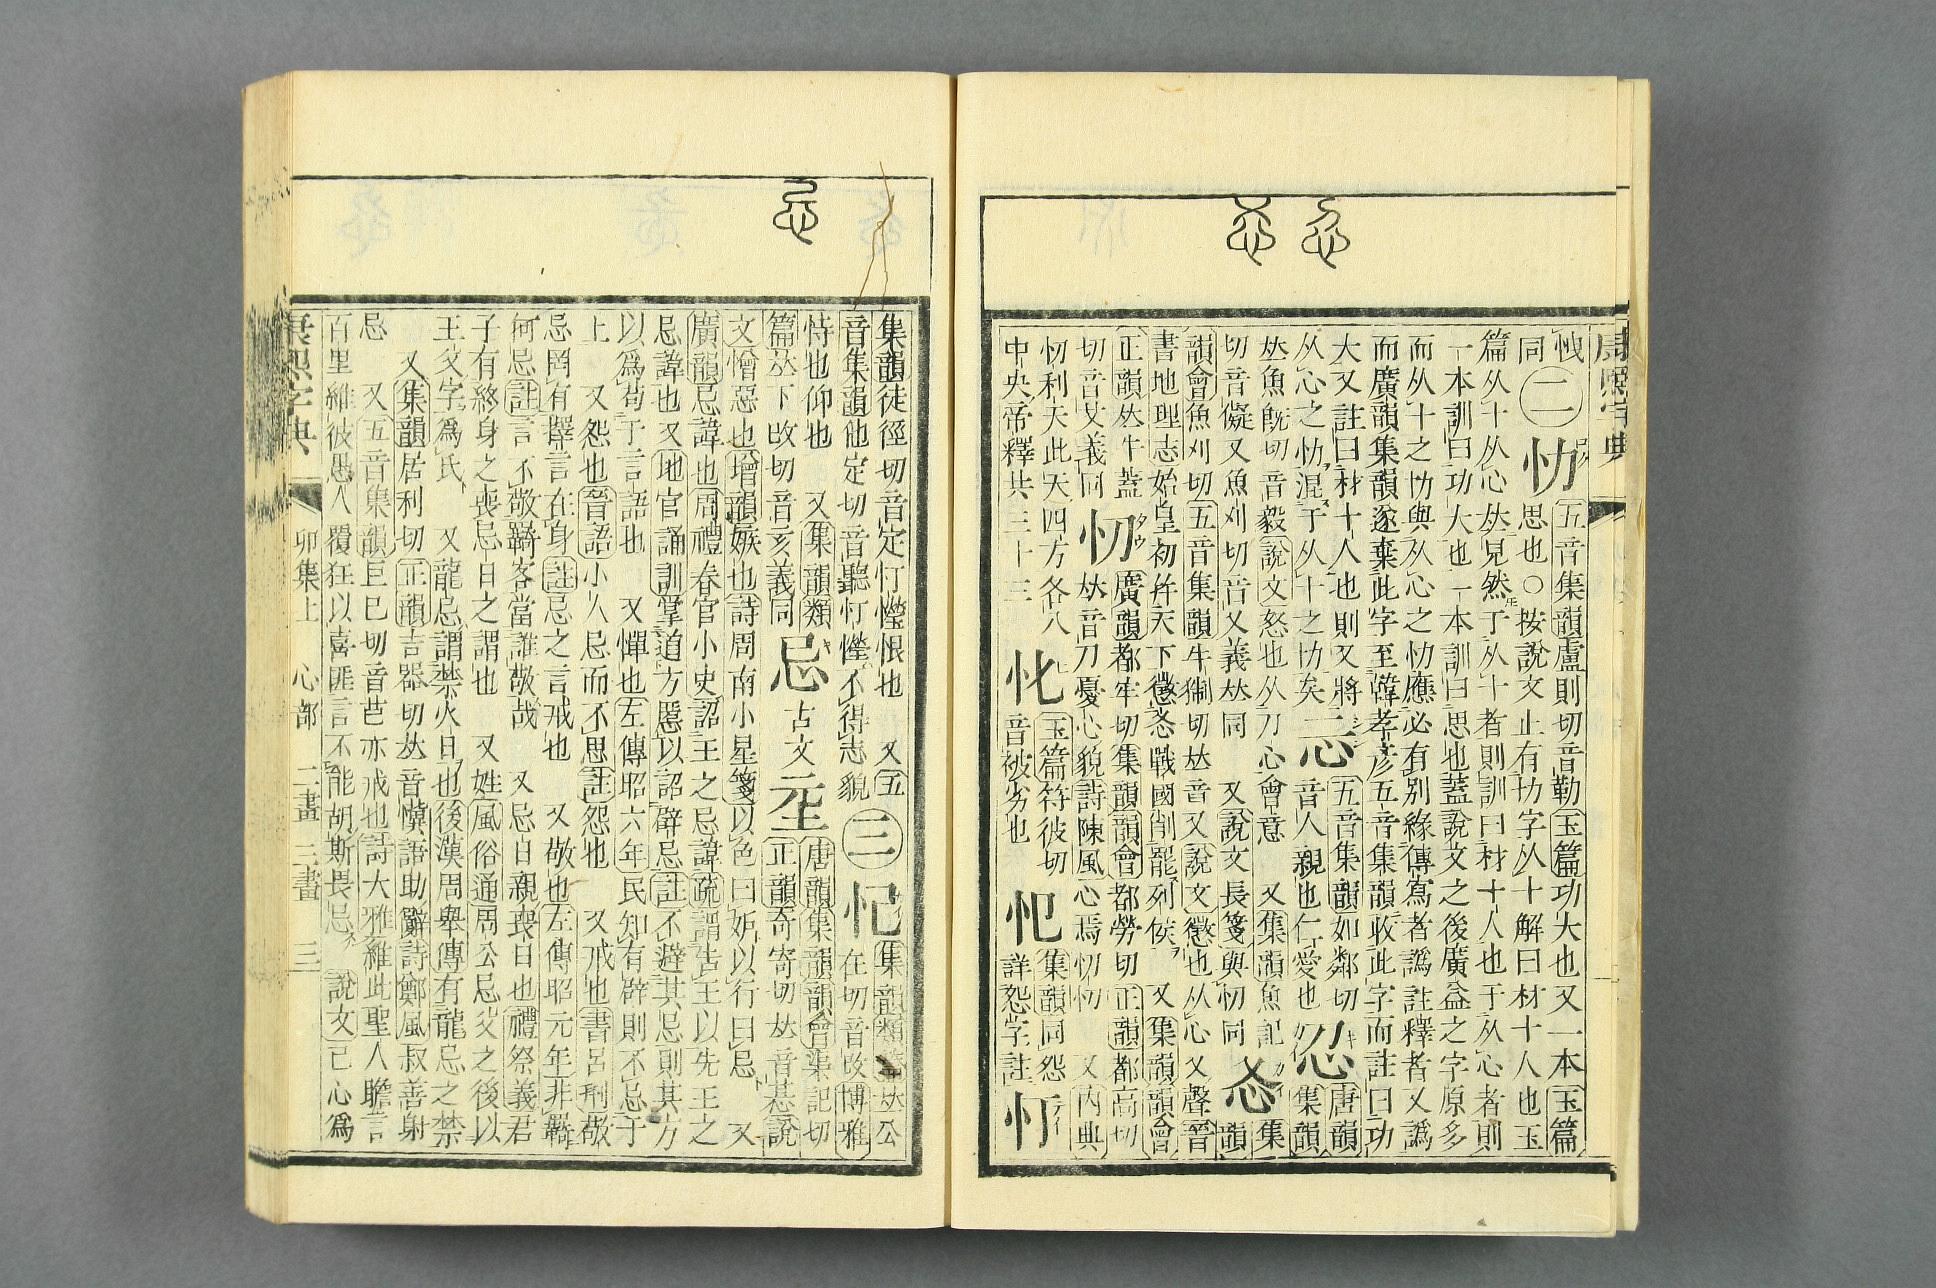 康熙字典
恱
同
二
忇
五音集韻盧則切音勒玉篇功大也又一本玉篇
思也○按說文止有㔹字从十解曰材十人也玉
篇从十从心𠀤見然于从十者則訓曰材十人也于从心者則
一本訓曰功大也一本訓曰思也蓋說文之後廣益之字原多
而从十之㔹與从心之忇應必有别緣傳寫者譌註釋者又譌
而廣韻集韻遂棄此字至韓孝彦五音集韻收此字而註曰功
大又註曰材十人也則又將
从心之忇混于从十之㔹矣
忈
五音集韻如鄰切
音人親也仁愛也
㣻
唐韻
集韻
𠀤魚旣切音毅說文怒也从刀心會意 又集韻魚記
切音儗又魚刈切音乂義𠀤同 又說文長箋與忉同
㣻
集
韻
韻會魚刈切五音集韻牛猘切𠀤音乂說文懲也从心乂聲晉
書地理志始皇初幷天下懲㣻戰國削罷列侯 又集韻韻會
正韻𠀤牛蓋
切音艾義同
忉
廣韻都牢切集韻韻會都勞切正韻都高切
𠀤音刀憂心貌詩陳風心焉忉忉 又內典
忉利天此天四方各八
中央帝釋共三十三
㣾
玉篇符彼切
音被劣也
㤆
集韻同怨
詳怨字註
忊
集韻徒徑切音定忊憕恨也 又五
音集韻他定切音聽忊憕不得志貌
三
忋
集韻類篇𠀤公
在切音改博雅
恃也仰也 又集韻類
篇𠀤下改切音亥義同
忌
古文
𢗍
唐韻集韻韻會渠記切
正韻奇寄切𠀤音惎說
文憎惡也增韻嫉也詩周南小星箋以色曰妒以行曰忌 又
廣韻忌諱也周禮春官小史詔王之忌諱疏謂告王以先王之
忌諱也又地官誦訓掌道方慝以詔辟忌註不避其忌則其方
以爲苟于言語也 又憚也左傳昭六年民知有辟則不忌于
上 又怨也晉語小人忌而不思註怨也 又戒也書呂𠛬敬
忌罔有擇言在身註忌之言戒也 又敬也左傳昭元年非羈
何忌註言不敬羈客當誰敬哉 又忌日親喪日也禮祭義君
子有終身之喪忌日之謂也 又姓風俗通周公忌父之後以
王父字爲氏 又龍忌謂禁火日也後漢周舉傳有龍忌之禁
又集韻居利切正韻吉器切𠀤音冀語助辭詩鄭風叔善射
忌 又五音集韻巨巳切音芑亦戒也詩大雅維此聖人瞻言
百里維彼愚人覆狂以喜匪言不能胡斯畏忌 說文己心爲
康熙字典 卯集上 心部 二畫 三畫 三